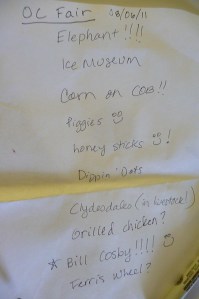 OC Fair 08/06/11
Elephant !!!!
Ice Museum
Corn on COB!!
Piggies
honey sticks !
Dippin' Dots
Clydesdales (in livestock!)
Grilled chicken?
Bill Cosby!!!!
Ferris Wheel?